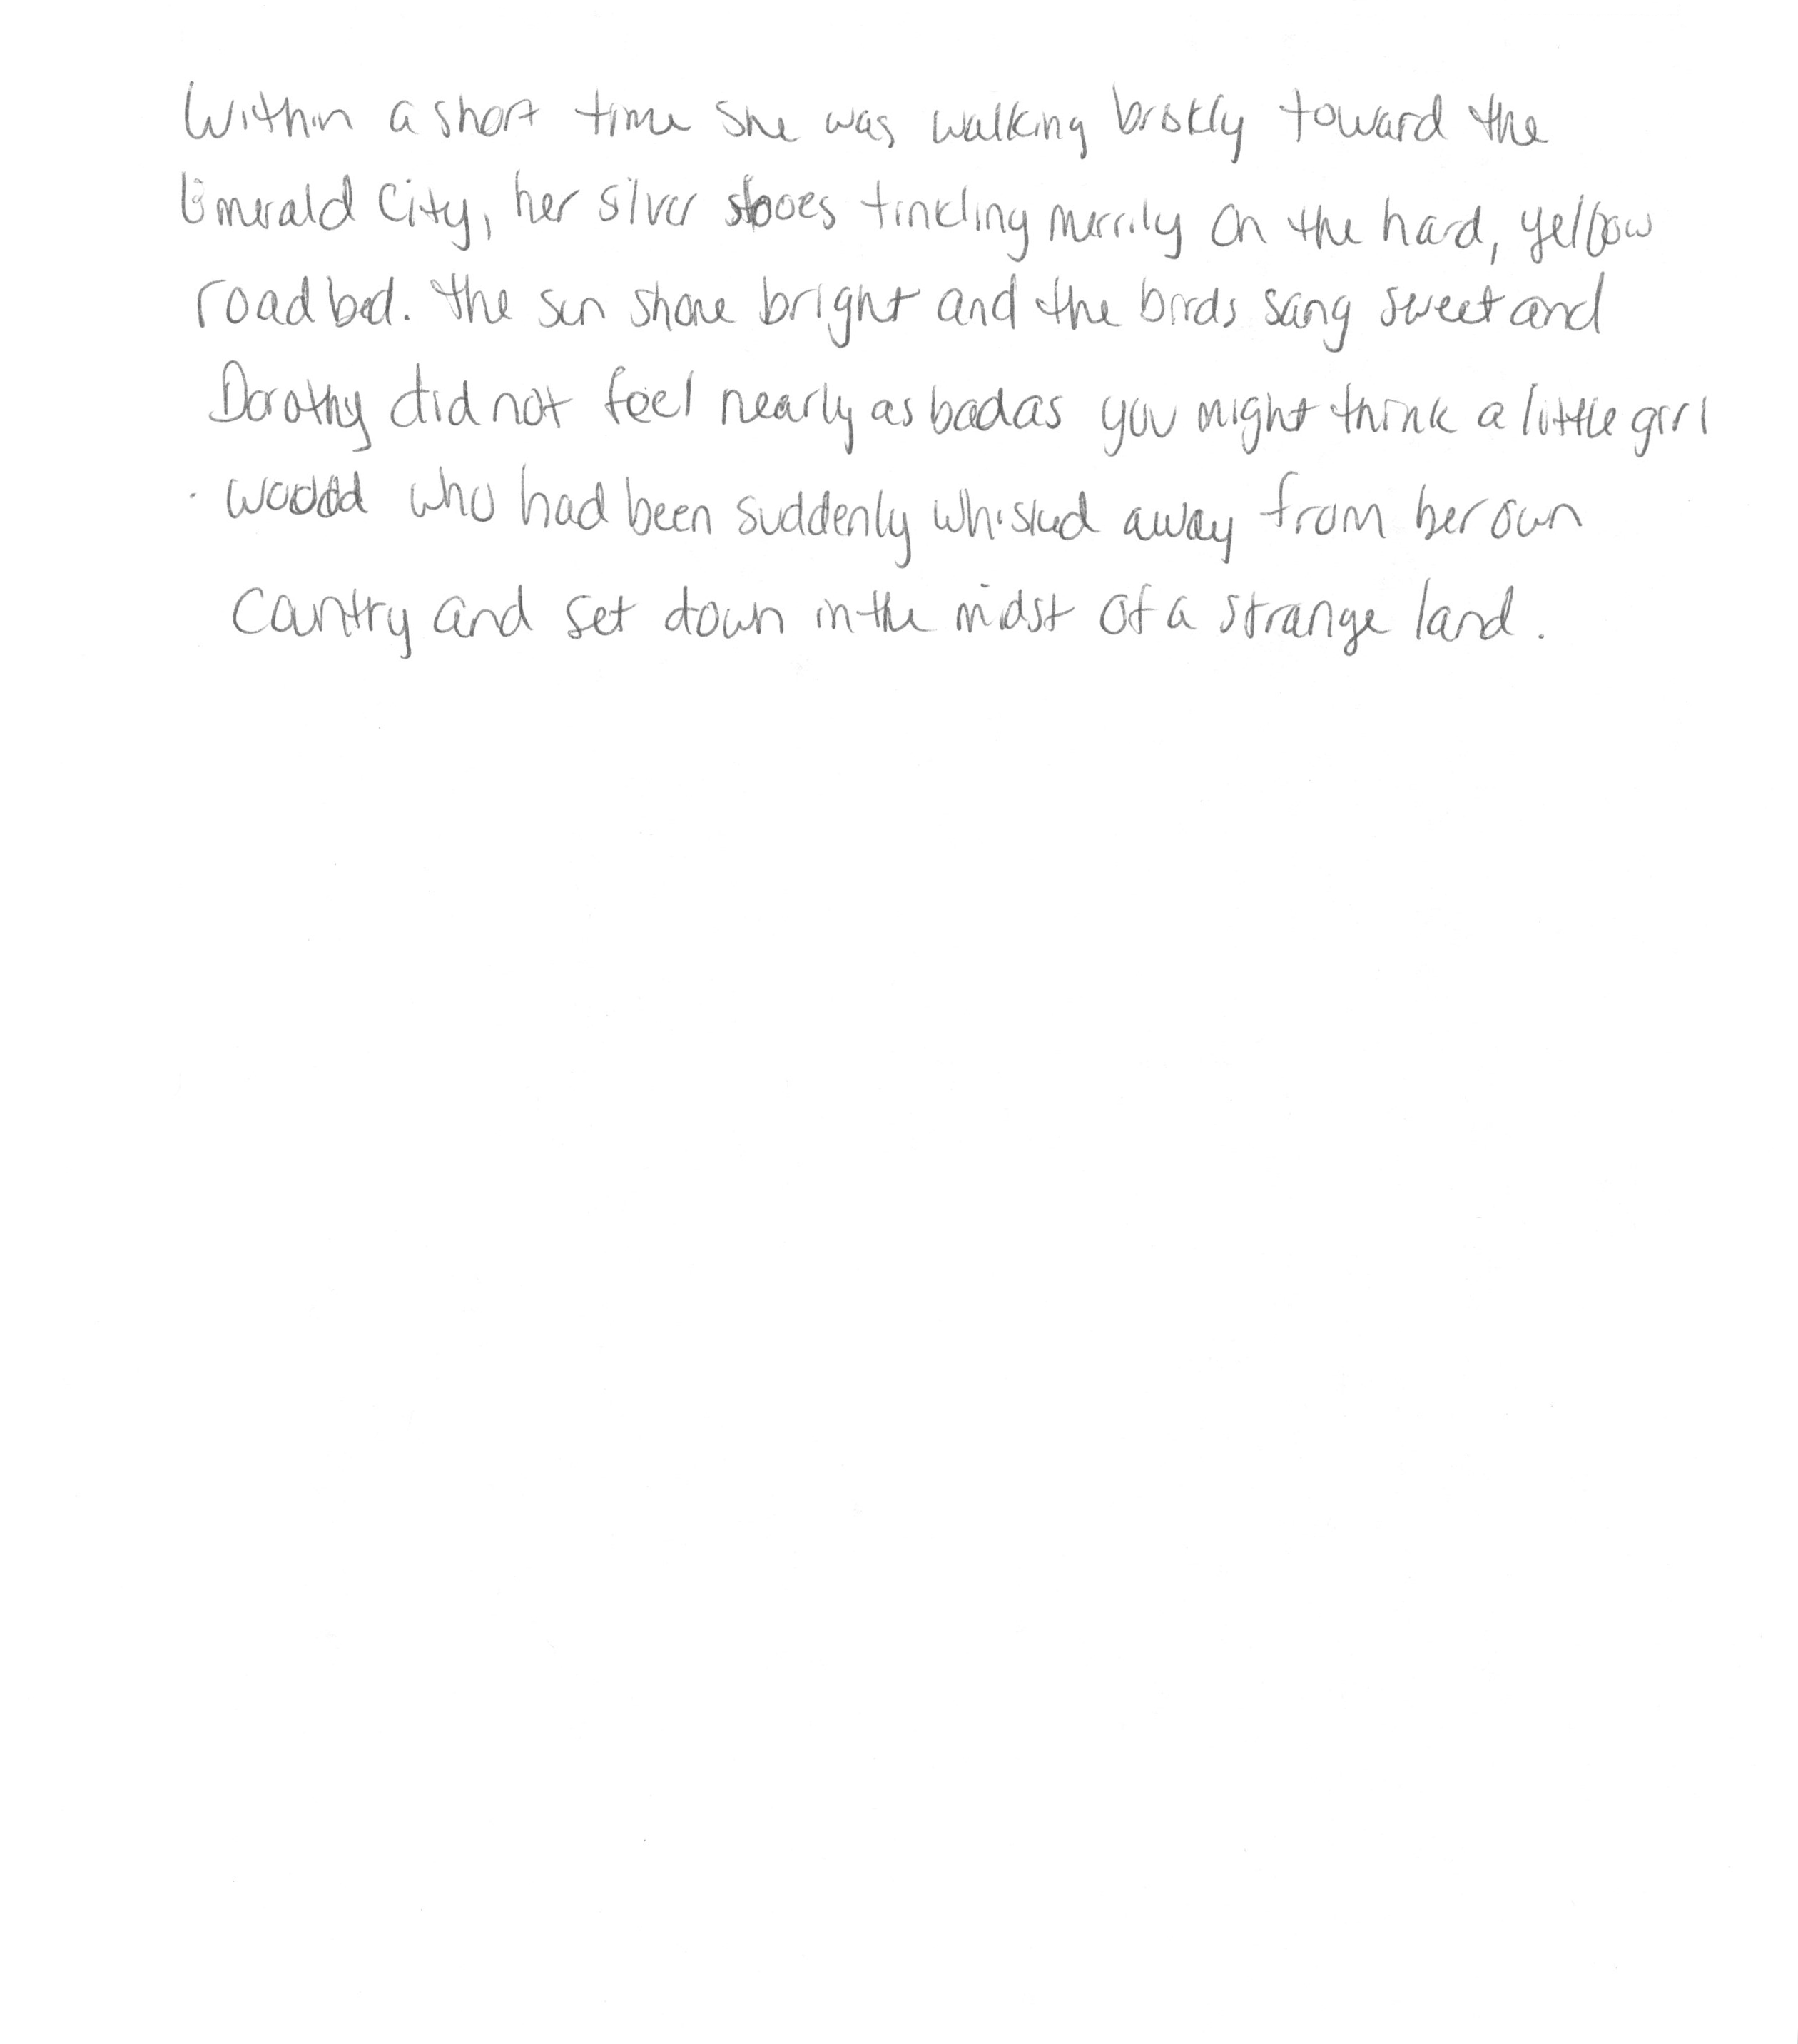 Within a short time she was walking briskly toward the
Emerald City, her silver shoes tinkling merrily on the hard, yellow
road bed. the sun shone bright and the birds sang sweet and
Dorothy did not feel nearly as bad as you might think a little girl
would who had been suddenly whisked away from her own
country and set down in the midst of a strange land.